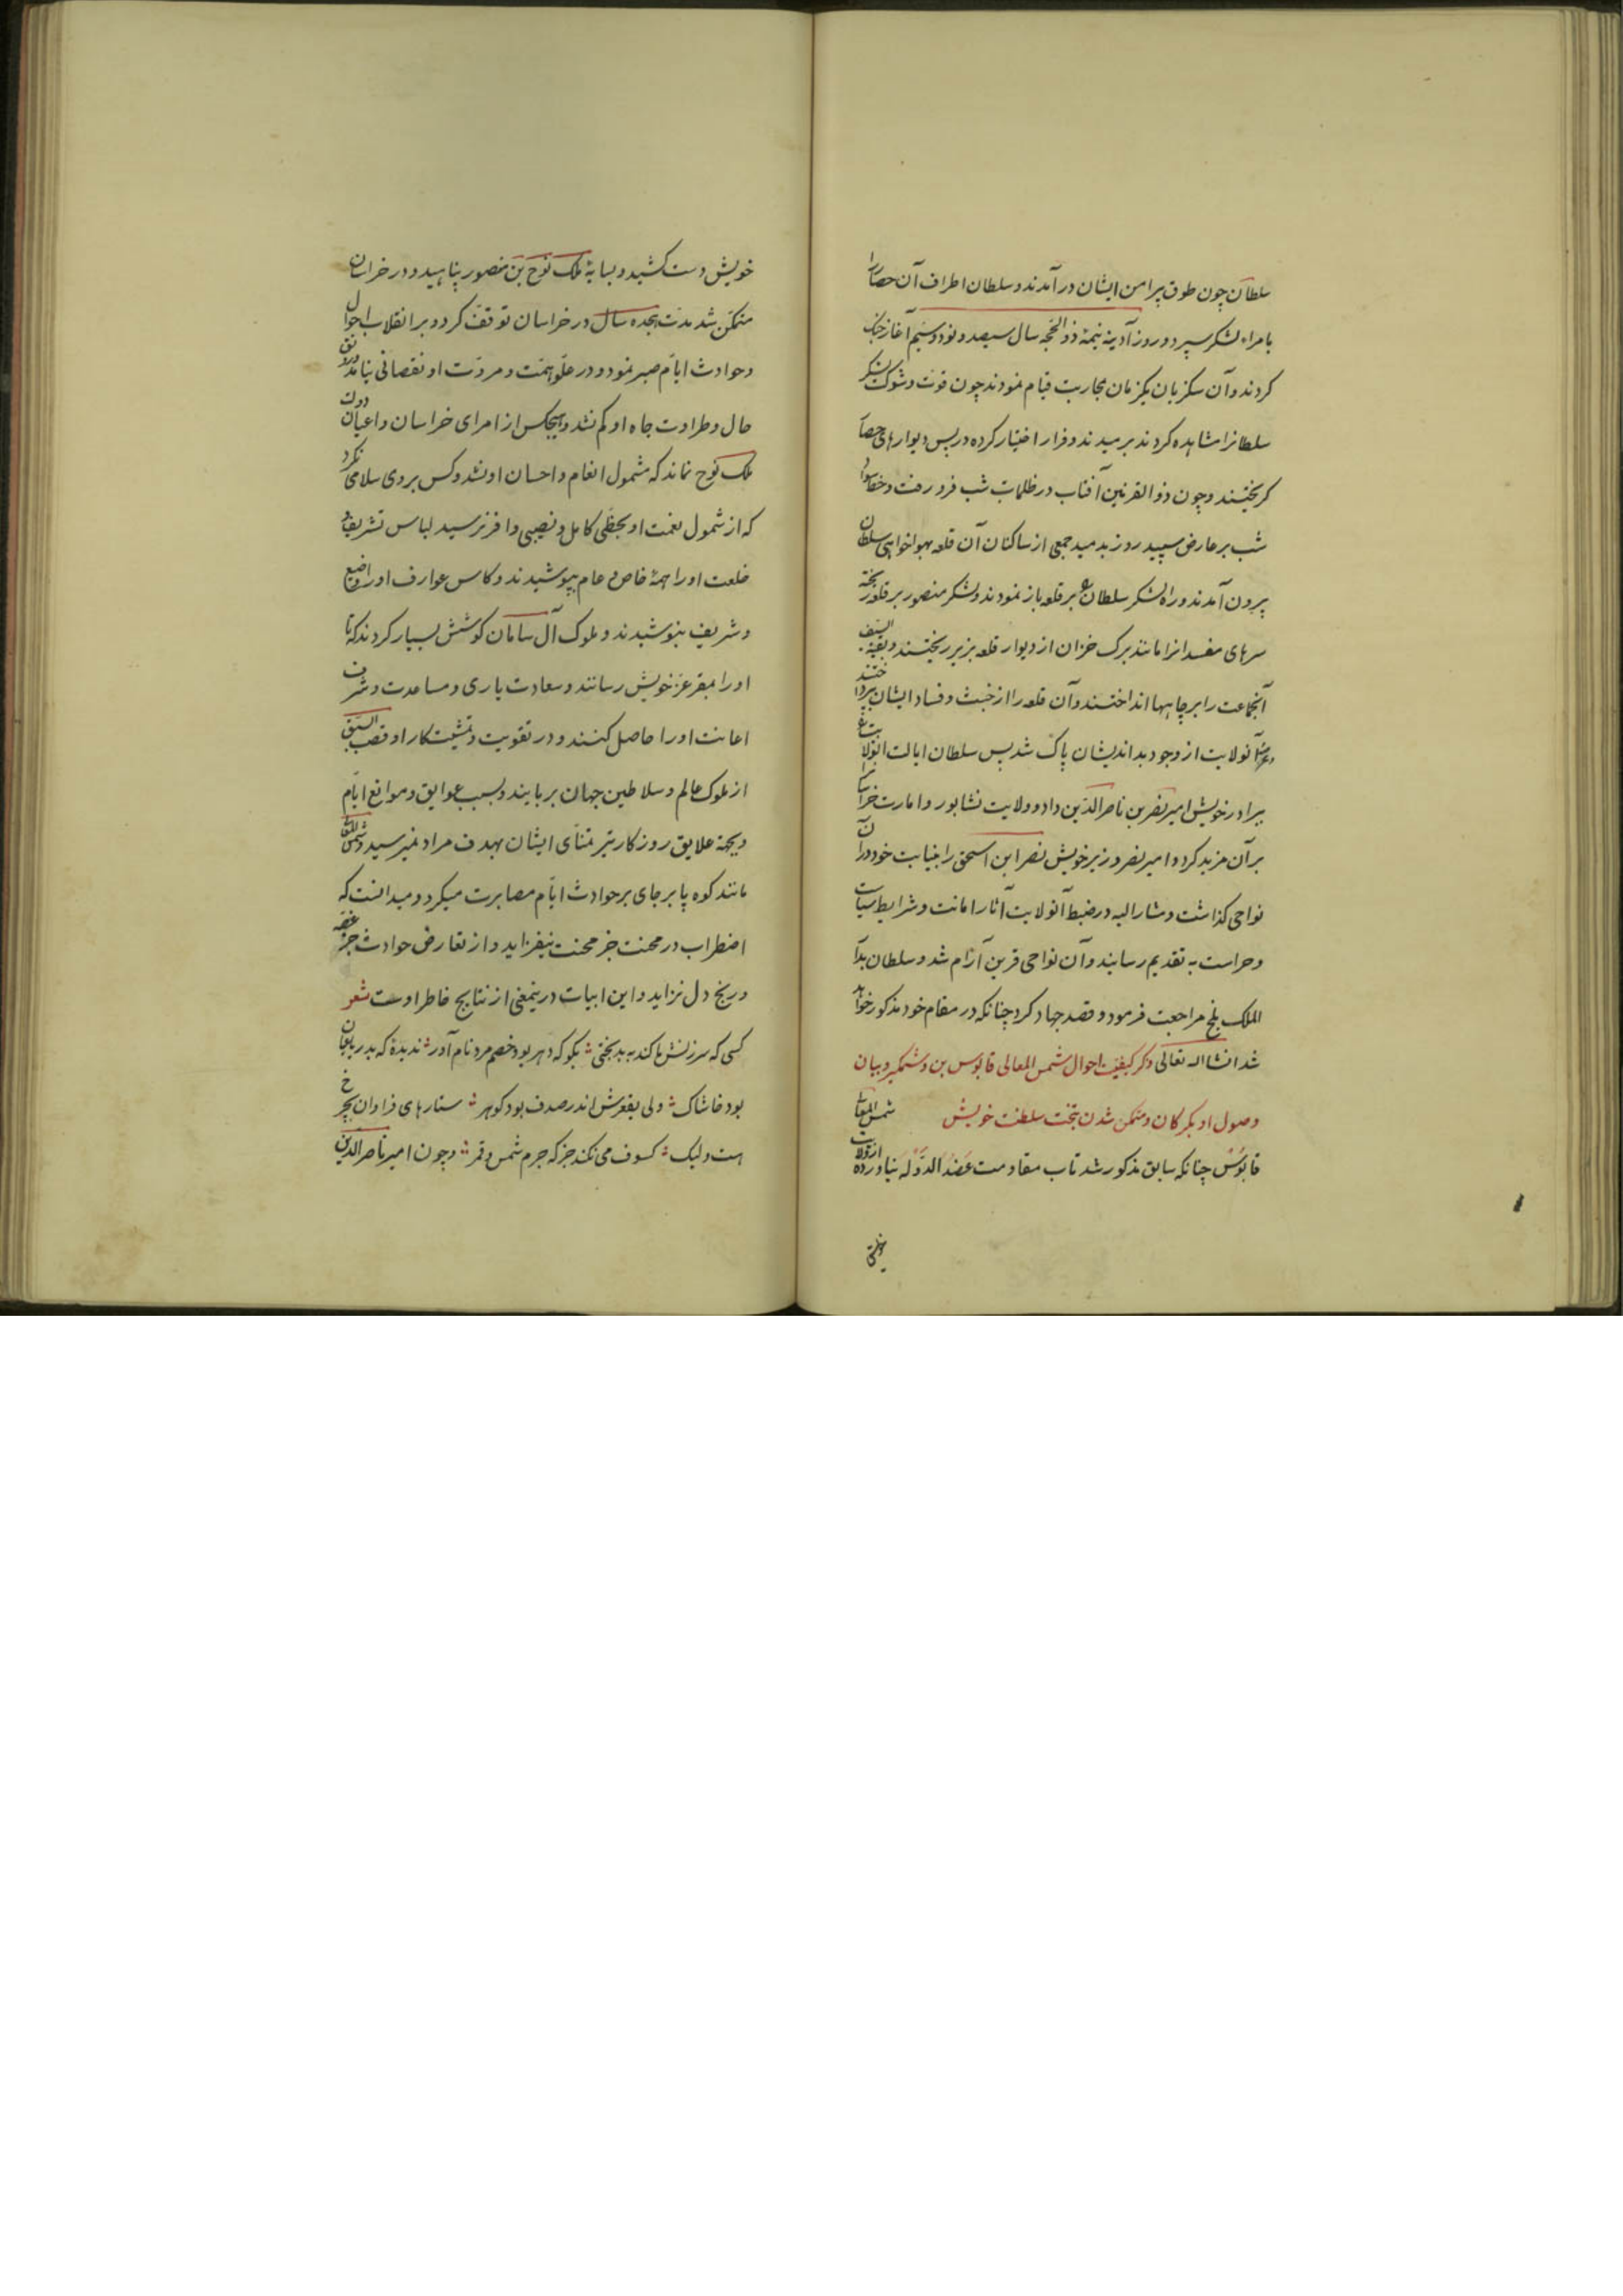 سلطان چون طوق پیرامن ایشان در آمدند و سلطان اطراف آن حصار را
بامراء لشکر سپرد و روز آدینه نیمهٔ ذو الحجه سال سیصد و نود و سیم آغاز جنک
کردند و آن سکزیان یکزمان بمحاربت قیام نمودند چون قوت و شوکت لشکر
سلطانرا مشاهده کردند برمیدند و فرار اختیار کرده در پس دیوارهای حصار
کریختند و چون ذو القرنین آفتاب در ظلمات شب فرو رفت و خط سواد
شب بر عارض سپید روز بدمید جمعی از ساکنان آن قلعه بهواخواهی سلطان
بیرون آمدند و راه لشکر سلطان بر قلعه باز نمودند و لشکر منصور بر قلعه ریخته
سرهای مفسدانرا مانند برک خزان از دیوار قلعه بزیر ریختند و بقیة السیف
آنجماعت را بر چاهها انداختند و آن قلعه را از خبث و فساد ایشان بپرداختند
و عرصهٔ آنولایت از وجود بداندیشان پاک شد پس سلطان ایالت انولایت
ببرادر خویش امیر نصر بن ناصر الدین داد و ولایت نشابور و امارت خراسان
بر آن مزید کرد و امیر نصر وزیر خویش نصر ابن اسحق را بنیابت خود در آن
نواحی کذاشت و مشار الیه در ضبط آنولایت آثار امانت و شرایط سیاست
و حراست به تقدیم رسانید و آن نواحی قرین آرام شد و سلطان بدار
الملک بلخ مراجعت فرمود و قصد جهاد کرد چنانکه در مقام خود مذکور خواهد
شد انشا اله تعالی ذکر کیفیت احوال شمس المعالی قابوس بن وشمکیر و بیان
وصول او بکرکان و متمکن شدن بتخت سلطنت خویش شمس المعالی
قابوس چنانکه سابق مذکور شد تاب مقاومت عضد الدوله نیاورده از ولایت
خویش دست کشید و بسایهٔ ملک نوح بن منصور پناهید و در خراسان
متمکن شد مدت هجده سال در خراسان توقف کرد و بر انقلاب احوال
و حوادث ایام صبر نمود و در علو همت و مروت او نقصانی نیامد و رونق
حال و طراوت جاه او کم نشد و هیچکس از امرای خراسان و اعیان دولت
ملک نوح نماند که مشمول انعام و احسان او نشد و کس بروی سلامی نکرد
که از شمول نعمت او بحظی کامل و نصیبی وافر نرسید لباس تشریف و
خلعت او را همهٔ خاص و عام بپوشیدند و کاس عوارف او را وضیع
و شریف بنوشیدند و ملوک آل سامان کوشش بسیار کردند که تا
او را بمقر عز خویش رسانند و سعادت یاری و مساعدت و شرف
اعانت او را حاصل کنند و در تقویت و تمشیت کار او قصب السبق
از ملوک عالم و سلاطین جهان بربایند و بسبب عوایق و موانع ایام
و بجهة علایق روزکار تیر تمنای ایشان بهدف مراد نمیرسید و شمس المعالی
مانند کوه پا بر جای بر حوادث ایام مصابرت میکرد و میدانست که
اضطراب در محنت جز محنت نیفزاید و از تعارض حوادث جز غصه
و رنج دل نزاید و این ابیات درینمعنی از نتایج خاطر اوست شعر
کسی که سرزنش ما کند به بدبختی بکو که دهر بود خصم مرد نام آور ندیدهٔ که بدریا نهان
بود خاشاک ولی بقعرش اندر صدف بود کوهر ستارهای فراوان بچرخ
هست ولیک کسوف می نکند جز که جرم شمس و قمر و چون امیر ناصر الدین